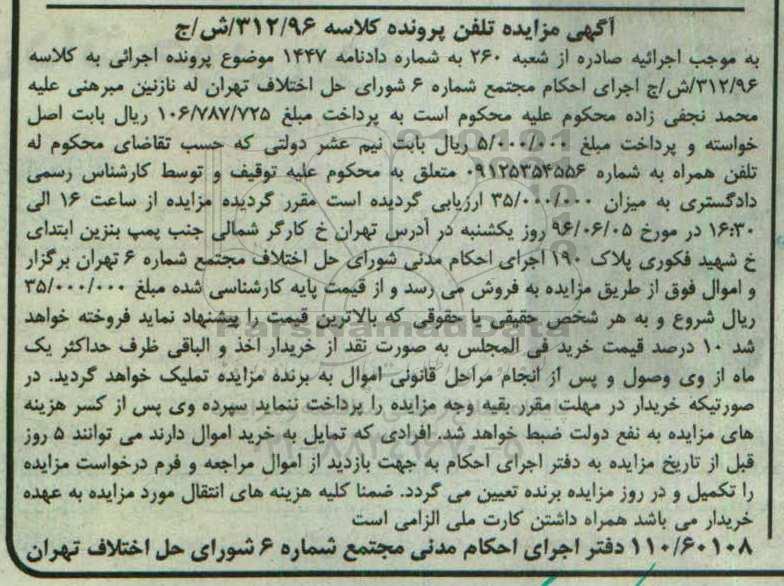 آگهی مزایده تلفن پرونده کلاسه ۳۱۲/۹۶/ش/ج
به موجب اجرائیه صادره از شعبه ۲۶۰ به شماره دادنامه ۱۴۴۷ موضوع پرونده اجرائی به کلاسه
۳۱۲/۹۶/ش/ج اجرای احکام مجتمع شماره ۶ شورای حل اختلاف تهران له نازنین مبرهنی علیه
محمد نجفی زاده محکوم علیه محکوم است به پرداخت مبلغ ۱۰۶/۷۸۷/۷۲۵ ریال بابت اصل
خواسته و پرداخت مبلغ ۵/۰۰۰/۰۰۰ ریال بابت نیم عشر دولتی که حسب تقاضای محکوم له
تلفن همراه به شماره ۰۹۱۲۵۳۵۴۵۵۶ متعلق به محکوم علیه توقیف و توسط کارشناس رسمی
دادگستری به میزان ۳۵/۰۰۰/۰۰۰ ارزیابی گردیده است مقرر گردیده مزایده از ساعت ۱۶ الی
۱۶:۳۰ در مورخ ۹۶/۰۶/۰۵ روز یکشنبه در آدرس تهران خ کارگر شمالی جنب پمپ بنزین ابتدای
خ شهید فکوری پلاک ۱۹۰ اجرای احکام مدنی شورای حل اختلاف مجتمع شماره ۶ تهران برگزار
و اموال فوق از طریق مزایده به فروش می رسد و از قیمت پایه کارشناسی شده مبلغ ۳۵/۰۰۰/۰۰۰
ریال شروع و به هر شخص حقیقی یا حقوقی که بالاترین قیمت را پیشنهاد نماید فروخته خواهد
شد ۱۰ درصد قیمت خرید فی المجلس به صورت نقد از خریدار اخذ و الباقی ظرف حداکثر یک
ماه از وی وصول و پس از انجام مراحل قانونی اموال به برنده مزایده تملیک خواهد گردید. در
صورتیکه خریدار در مهلت مقرر بقیه وجه مزایده را پرداخت ننماید سپرده وی پس از کسر هزینه
های مزایده به نفع دولت ضبط خواهد شد. افرادی که تمایل به خرید اموال دارند می توانند ۵ روز
قبل از تاریخ مزایده به دفتر اجرای احکام به جهت بازدید از اموال مراجعه و فرم درخواست مزایده
را تکمیل و در روز مزایده برنده تعیین می گردد. ضمنا کلیه هزینه های انتقال مورد مزایده به عهده
خریدار می باشد همراه داشتن کارت ملی الزامی است
۱۱۰/۶۰۱۰۸ دفتر اجرای احکام مدنی مجتمع شماره ۶ شورای حل اختلاف تهران